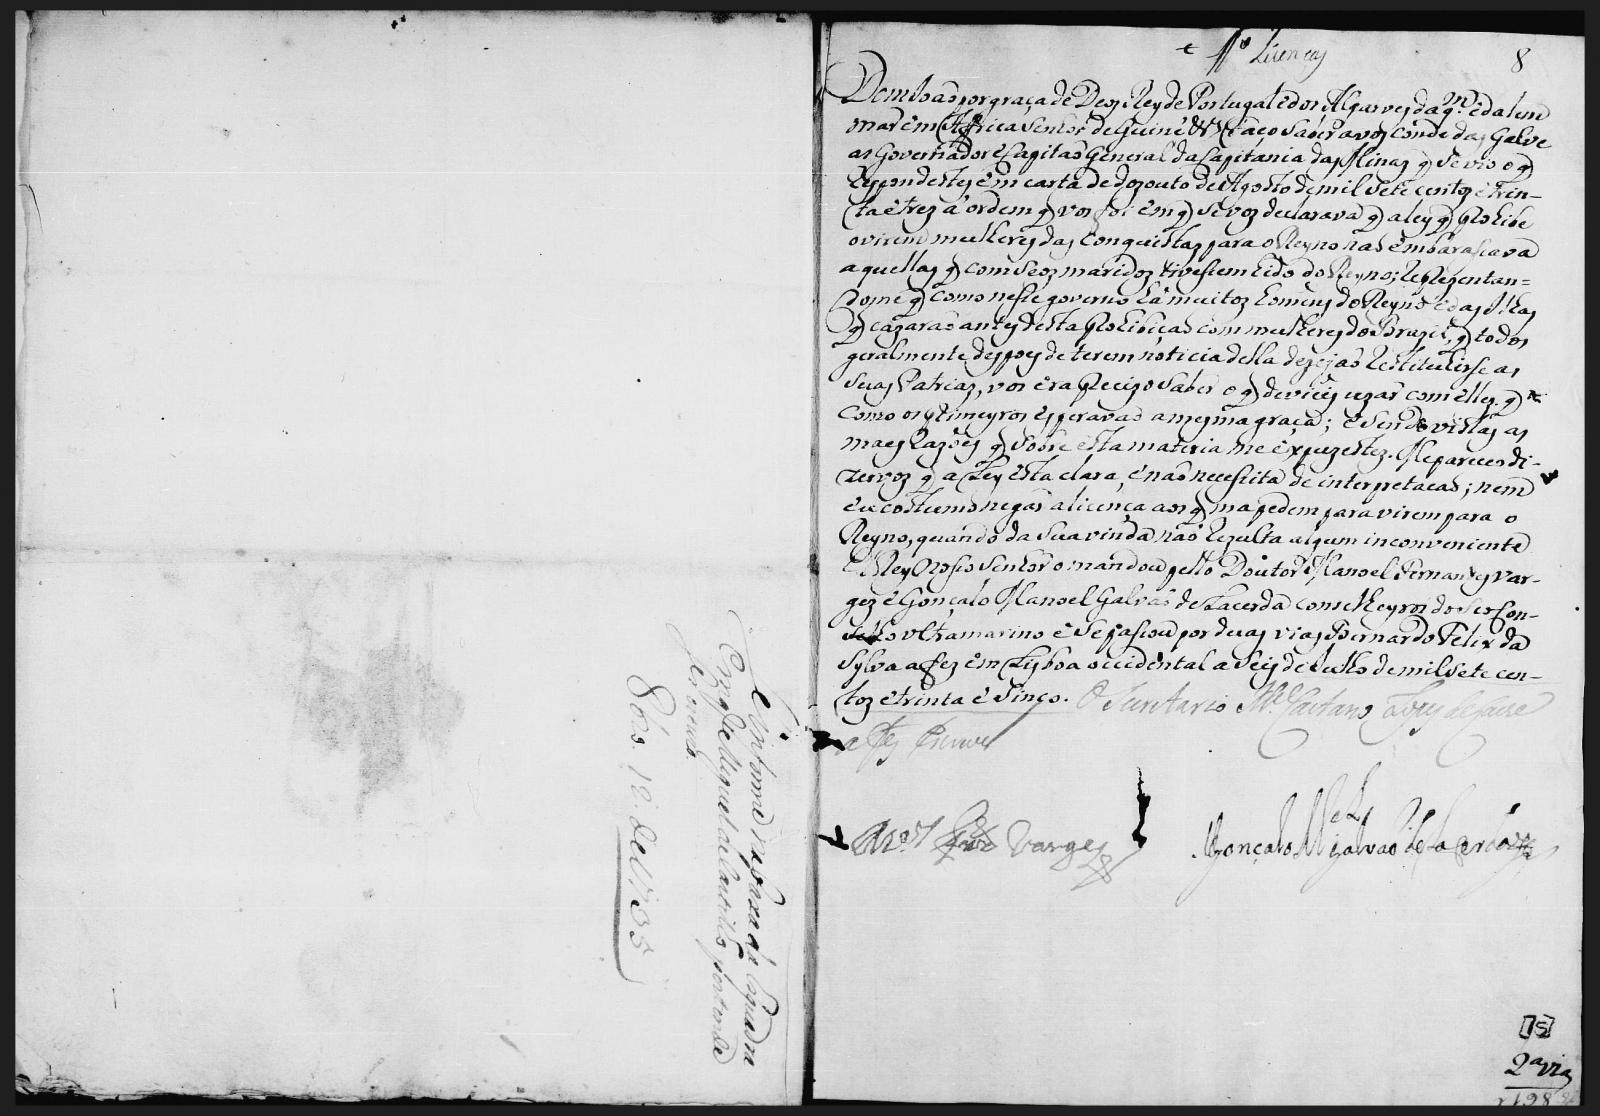 Licenças
8
Dom Joaõ por graça de Deos Rey de Portugal e dos Algarves daq.m e dalem
mar em Africa Senhor de Guiné &.ª Faço saber a vos Conde das Galve
as Governador e Capitaõ General da Capitania das Minas q̃ se vio o q̃
respondestes em carta de dozouto de Agosto de mil sete centos e trin-
ta e trez á ordem q̃ vos foi em q̃ se vos declarava q̃ a ley q̃ prohibe
o virem mulheres das Conquistas para o Reyno naõ embarassava
aquellas q̃ com seos maridos tivessem hido do Reyno; reprezentan=
dome q̃ como nesse governo ha muitos homens do Reyno e das Ilhas
q̃ cazaraõ antes desta prohibiçaõ com mulheres do Brazil, q̃ todos
geralmente despoes de terem noticia della dezejaõ restituhirse as
suas Patrias, vos era precizo saber o q̃ devieis uzar com elles, q̃
como os primeyros esperavaõ a mesma graça; e sendo vistas as
maes razões q̃ sobre esta materia me expuzestes. Me pareceo di-
zervos q̃ a Ley está clara, e naõ necessita de interpretacaõ; nem
eu costumo negar a licença aos q̃ ma pedem para virem para o
Reyno, quando da sua vinda naõ rezulta algum inconveniente
El Rey Nosso Senhor o mandou pello Doutor Manoel Fernandes Var-
gez e Gonçalo Manoel Galvaõ de Lacerda Conselheyros do Seo Con-
selho Ultramarino e se passou por duas vias Bernardo Felix da
Sylva a fez em Lisboa occidental a seis de Julho de mil sete cen-
tos e trinta e sinco. O Secretario M.el Caetano Lopes de Lavre
a fez escrever
M.el Frz Vargez
Gonçalo M.el Galvaõ de Lacerda
[15]
2ª via
por
Jeronimo
18. de 1735